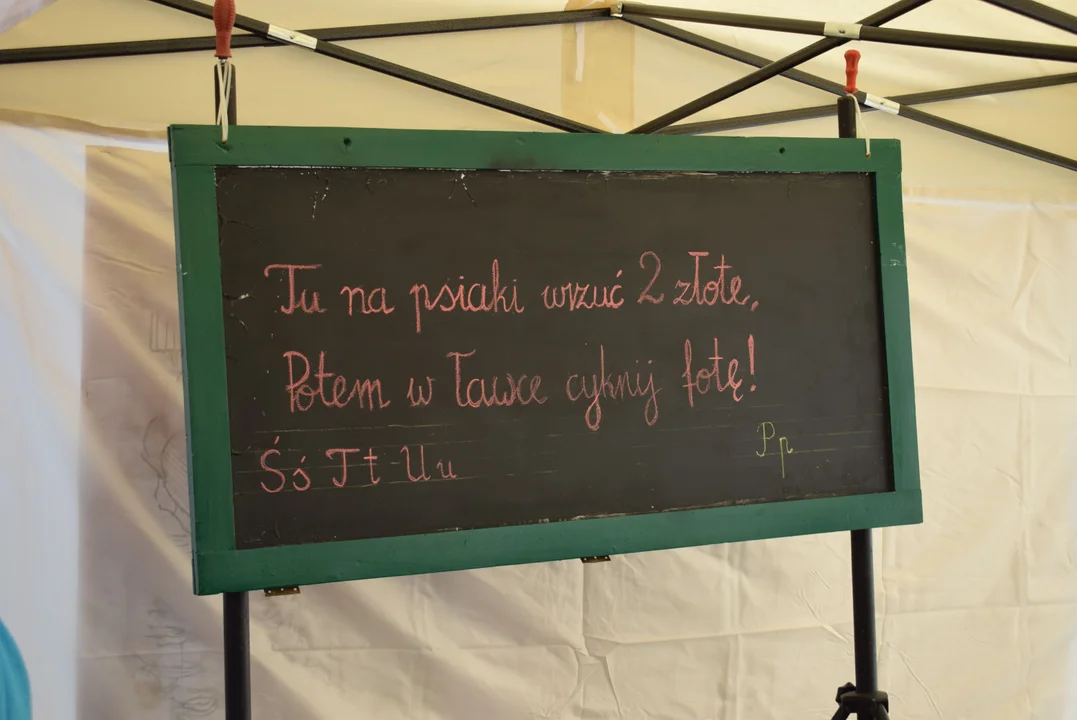 Tu na psiaki wrzuć 2 złote,
Potem w ławce cyknij fotę!
Śś Tt Uu
Pp